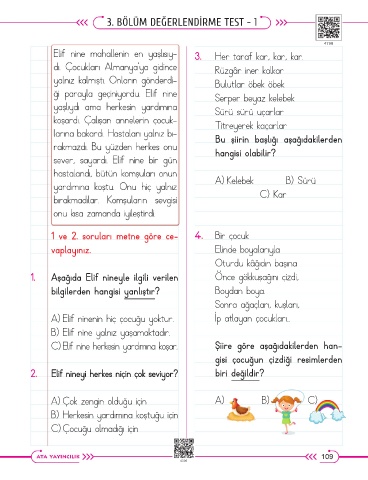 3. BÖLÜM DEĞERLENDİRME TEST - 1
Elif nine mahallenin en yaşlısıy-
dı. Çocukları Almanya'ya gidince
yalnız kalmıştı. Onların gönderdi-
ği parayla geçiniyordu. Elif nine
yaşlıydı ama herkesin yardımına
koşardı. Çalışan annelerin çocuk-
larına bakardı. Hastaları yalnız bı-
rakmazdı. Bu yüzden herkes onu
sever, sayardı. Elif nine bir gün
hastalandı, bütün komşuları onun
yardımına koştu. Onu hiç yalnız
bırakmadılar. Komşuların sevgisi
onu kısa zamanda iyileştirdi.
1 ve 2. soruları metne göre ce-
vaplayınız.
1. Aşağıda Elif nineyle ilgili verilen
bilgilerden hangisi yanlıştır?
A) Elif ninenin hiç çocuğu yoktur.
B) Elif nine yalnız yaşamaktadır.
C) Elif nine herkesin yardımına koşar.
2. Elif nineyi herkes niçin çok seviyor?
A) Çok zengin olduğu için
B) Herkesin yardımına koştuğu için
C) Çocuğu olmadığı için
3. Her taraf kar, kar, kar.
Rüzgâr iner kalkar
Bulutlar öbek öbek
Serper beyaz kelebek
Sürü sürü uçarlar
Titreyerek kaçarlar
Bu şiirin başlığı aşağıdakilerden
hangisi olabilir?
A) Kelebek B) Sürü
C) Kar
4. Bir çocuk
Elinde boyalarıyla
Oturdu kâğıdın başına
Önce gökkuşağını çizdi,
Boydan boya.
Sonra ağaçları, kuşları,
İp atlayan çocukları...
Şiire göre aşağıdakilerden han-
gisi çocuğun çizdiği resimlerden
biri değildir?
A) B) C)
ATA YAYINCILIK
109